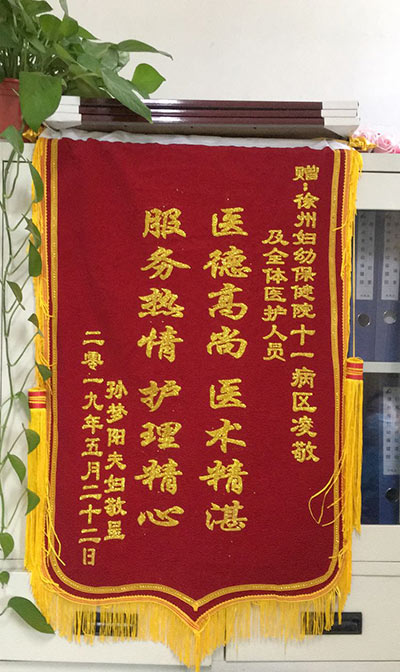 赠:徐州妇幼保健院十一病区凌敬
及全体医护人员
医德高尚 医术精湛
服务热情 护理精心
孙梦阳夫妇敬呈
二零一九年五月二十二日